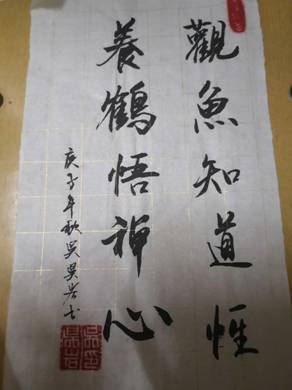 觀魚知道性
養鶴悟禅心
庚子年秋吴昊岩书